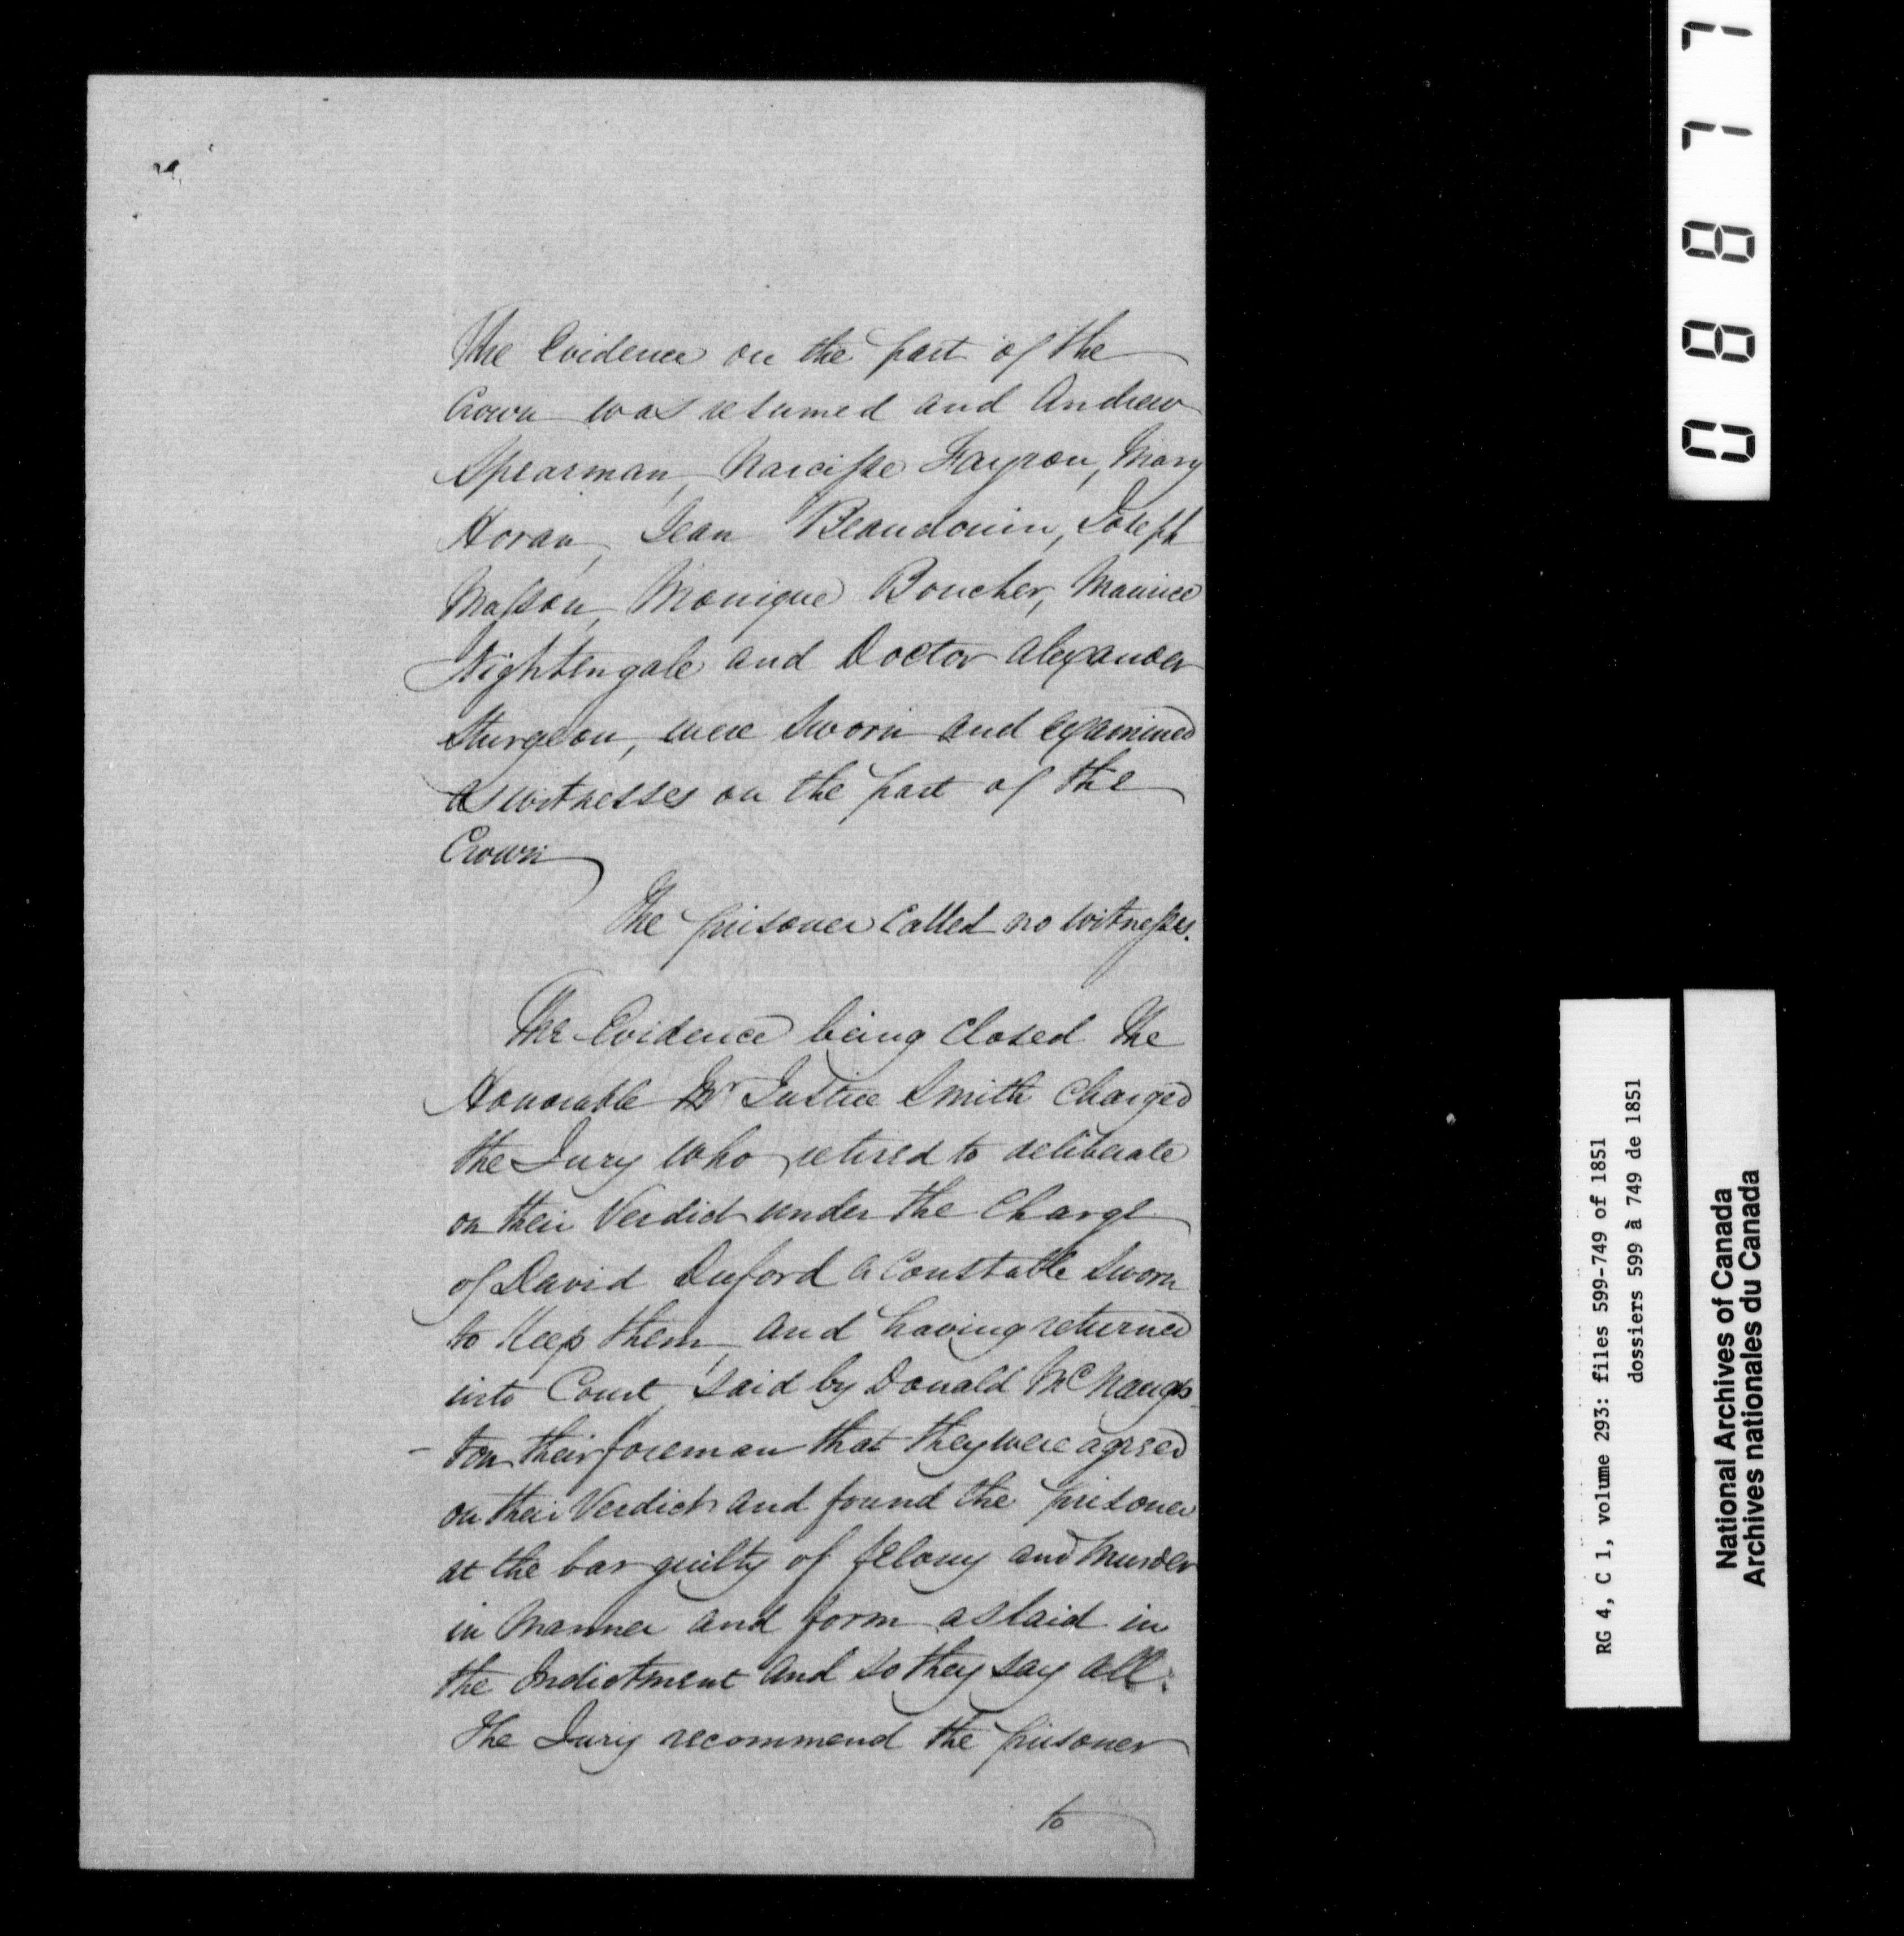 The Evidence on the part of the
Crown was resumed and Andrew
Spearman, Narcisse Fayron, Mary
Horan, Jean Beaudouin, Joseph
Masson, Monique Boucher, Maurice
Nightengale and Doctor Alexander
Sturgeon, were sworn and examined
as witnesses on the part of the
Crown
The prisoner called no witnesses.
The Evidence being closed the
Honorable Mr Justice Smith charged
the Jury who retired to deliberate
on their Verdict under the charge
of David Duford a Constable sworn
to keep them, and having returned
into Court, said by Donald McNaugh-
-ton their foreman that they were agreed
on their Verdict and found the prisoner
at the bar guilty of felony and murder
in manner and form as laid in
the Indictment and so they say all.
The Jury recommend the prisoner
to
08877
RG 4, C 1, volume 293: files 599-749 of 1851
dossiers 599 à 749 de 1851
National Archives of Canada
Archives nationales du Canada